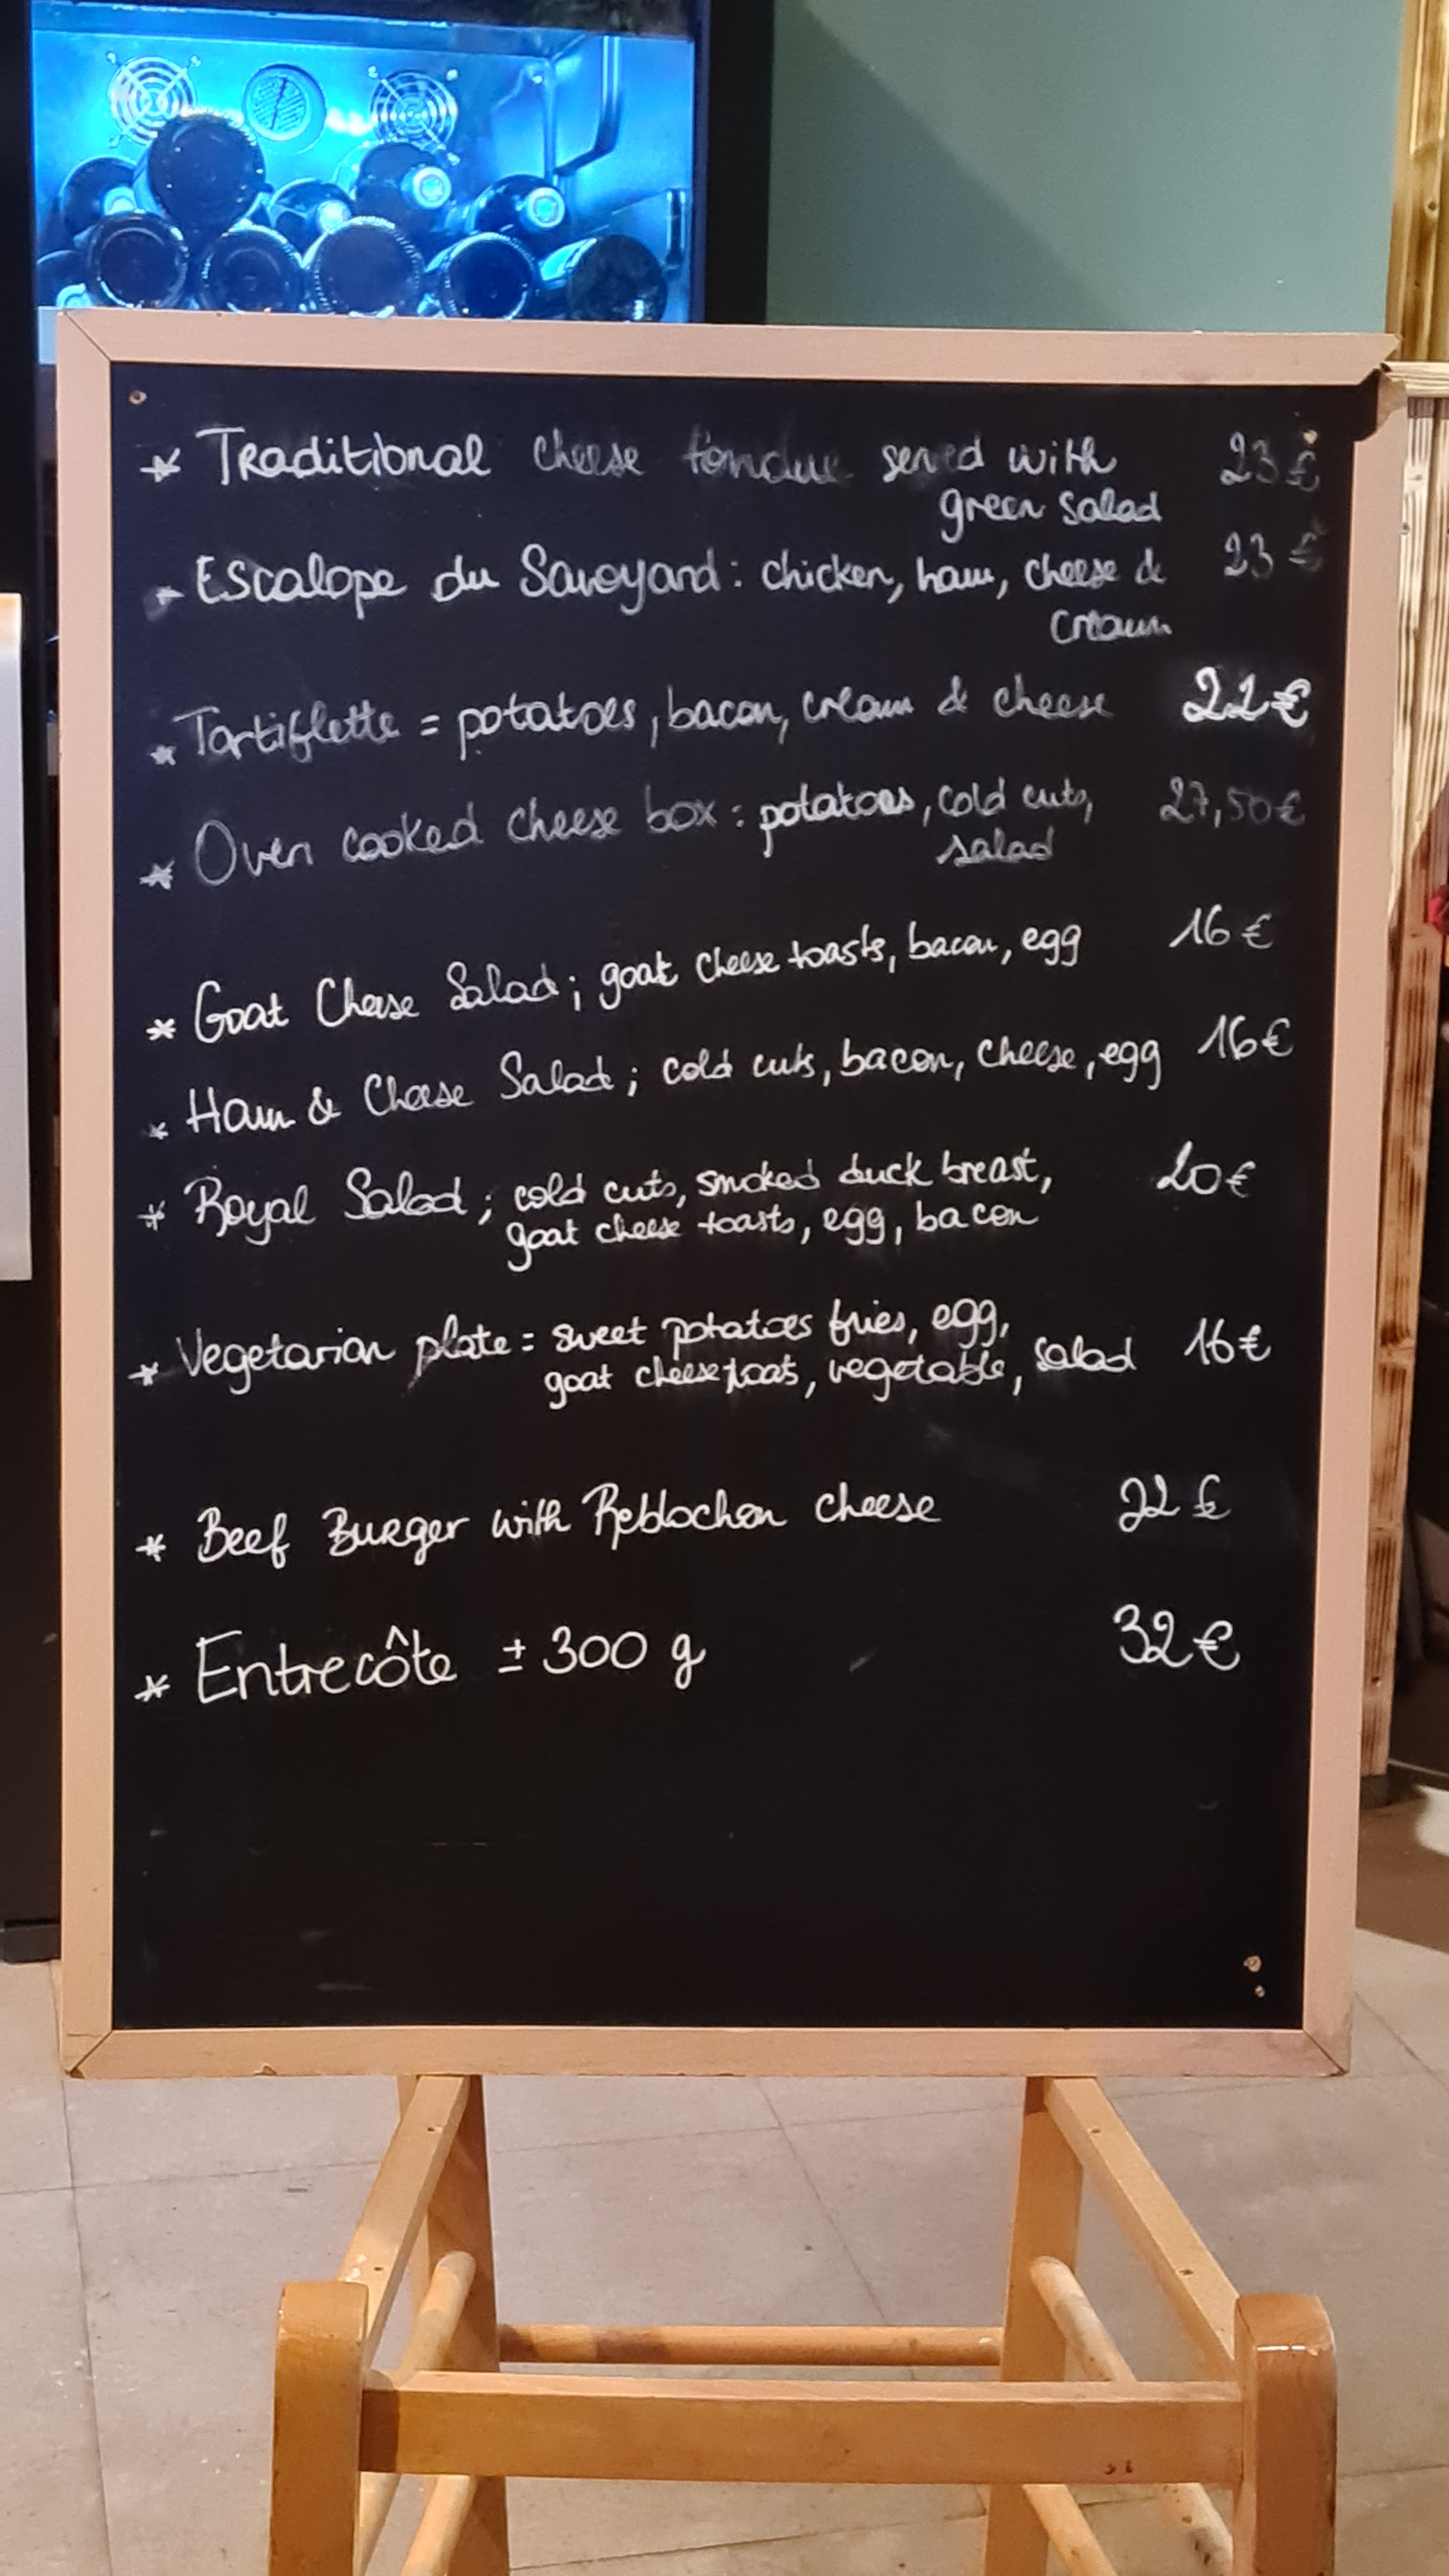 * Traditional cheese fondue served with 23€
green salad
* Escalope du Savoyard: chicken, ham, cheese & 23€
cream
* Tartiflette = potatoes, bacon, cream & cheese 22€
* Oven cooked cheese box: potatoes, cold cuts, 27,50€
salad
* Goat Cheese Salad; goat cheese toasts, bacon, egg 16€
* Ham & Cheese Salad; cold cuts, bacon, cheese, egg 16€
* Royal Salad; cold cuts, smoked duck breast, 20€
goat cheese toasts, egg, bacon
* Vegetarian plate = sweet potatoes fries, egg,
goat cheese toast, vegetable, salad 16€
* Beef Burger with Reblochon cheese 22€
* Entrecôte ± 300 g 32€